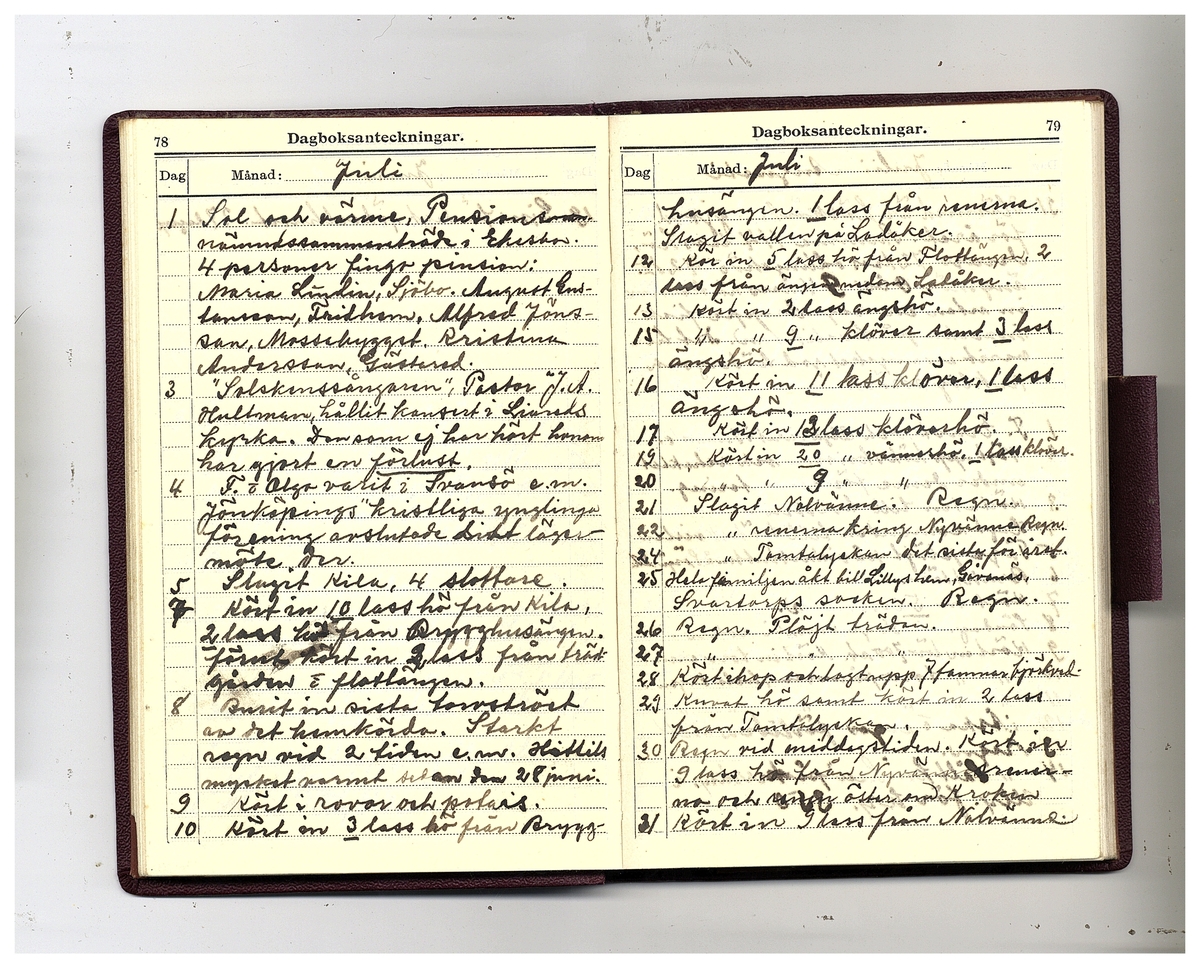 78
Dagboksanteckningar.
Dag Månad: Juli
1 Sol och värme, Pensions-
nämndssammanträde i Ekesbo.
4 personer fingo pension:
Maria Lindin, Sjöbo. August Gus-
tavsson, Fridhem, Alfred Jöns-
son, Mossebygget. Kristina
Andersson, Gåstared.
3 "Solskenssångaren", Pastor J. A.
Hultman, hållit konsert i Liareds
kyrka. Den som ej har hört honom
har gjort en förlust.
4 F. o Olga varit i Svansö e.m.
Jönköpings kristliga ynglinga
förening avslutade sitt läger-
möte der.
5 Slagit Kila, 4 slottare.
7 Kört in 10 lass hö från Kila,
2 lass hö från Brygghusängen.
förut kört in 2 lass från träd-
gården o flatängen.
8 Burit in sista torvströet
av det hemkörda. Starkt
regn vid 2 tiden e.m. Hittils
mycket varmt sedan den 28 juni.
9 Kört i rovor och potatis.
10 Kört in 3 lass hö från Brygg-
79
Dagboksanteckningar.
Dag Månad: Juli
husängen. 1 lass från renerna.
Slagit vallen på Ladåker.
12 Kört in 5 lass hö från Flottängen, 2
lass från ängen nedom Ladåker.
13 Kört in 2 lass ängshö.
15 " " 9 " klöver samt 3 lass
ängshö.
16 Kört in 11 lass klöver, 1 lass
ängshö.
17 Kört in 13 lass klöverhö.
19 Kört in 20 " vännerhö. 1 lass klöver.
20 " " 9 " "
21 Slagit Nolvänne. Regn.
22 " renerna kring Nyvänne Regn.
24 " Tomtalyckan det sista för året.
25 Hela familjen åkt till Lillyshem, Girenäs,
Svartorps socken. Regn.
26 Regn. Plöjt träden.
27 " " "
28 Kört ihop och lagt upp 7 famnar björkved.
29 Kuvat hö samt kört in 2 lass
från Tomtalyckan.
30 Regn vid middagstiden. Kört in
9 lass hö från Nyvänne renor-
na och öster om Kroken
31 Kört in 9 lass från Nolvänne.